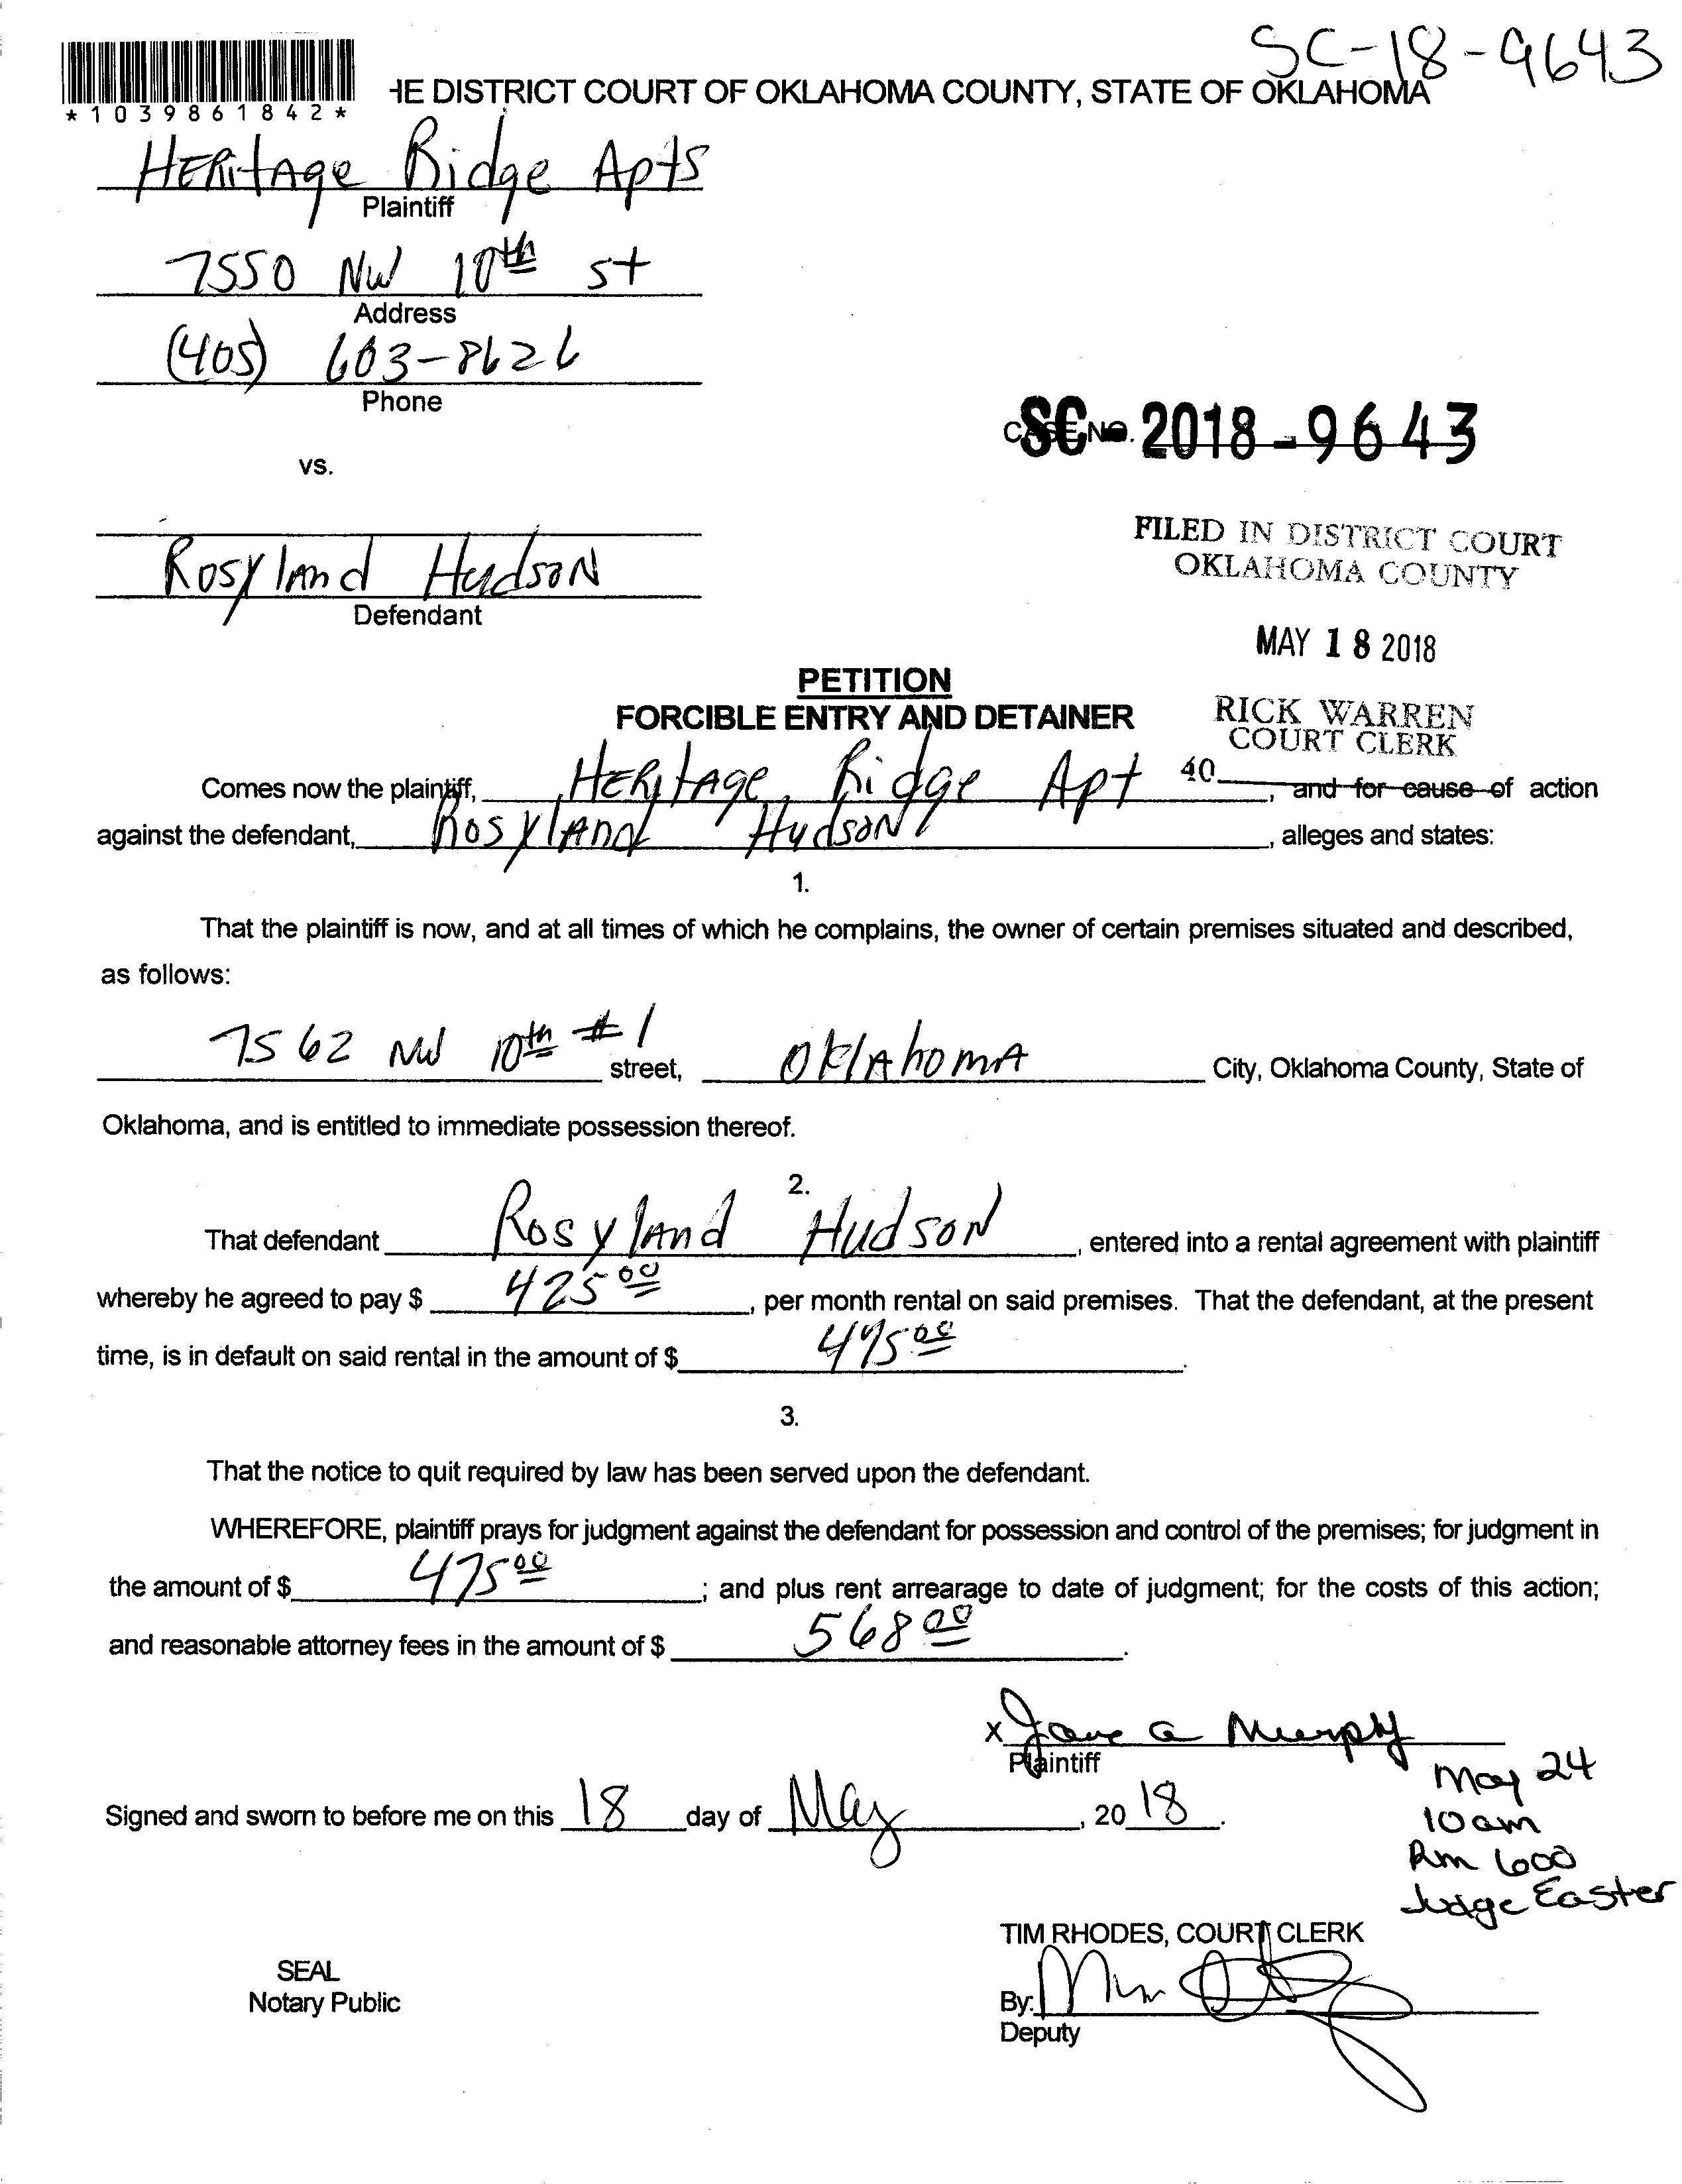 SC-18-9643
HE DISTRICT COURT OF OKLAHOMA COUNTY, STATE OF OKLAHOMA
*1039861842*
HERitAge Ridge Apts
Plaintiff
7550 NW 10th st
Address
(405) 603-8626
Phone
SC- 2018-9643
CASE NO.
vs.
FILED IN DISTRICT COURT
OKLAHOMA COUNTY
RosylAnd HudsoN
Defendant
MAY 18 2018
PETITION
FORCIBLE ENTRY AND DETAINER
RICK WARREN
COURT CLERK
40
Comes now the plaintiff, HERitAge Ridge Apt, and for cause of action
against the defendant, RosylAnd HudsoN, alleges and states:
1.
That the plaintiff is now, and at all times of which he complains, the owner of certain premises situated and described,
as follows:
7562 NW 10th #1 street, OklAhomA City, Oklahoma County, State of
Oklahoma, and is entitled to immediate possession thereof.
2.
That defendant RosylAnd HudsoN, entered into a rental agreement with plaintiff
whereby he agreed to pay $ 425 00, per month rental on said premises. That the defendant, at the present
time, is in default on said rental in the amount of $ 475 00.
3.
That the notice to quit required by law has been served upon the defendant.
WHEREFORE, plaintiff prays for judgment against the defendant for possession and control of the premises; for judgment in
the amount of $ 475 00; and plus rent arrearage to date of judgment; for the costs of this action;
and reasonable attorney fees in the amount of $ 568 00.
x Jane a Murphy
Plaintiff
May 24
10am
Rm 600
Judge Easter
Signed and sworn to before me on this 18 day of May, 20 18.
TIM RHODES, COURT CLERK
SEAL
Notary Public
By:
Deputy